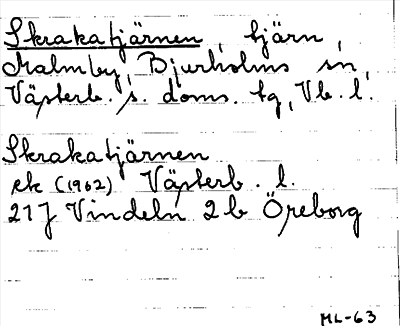 Skrakatjärnen, tjärn,
Malmby, Bjurholms sn,
Västerb. s. doms. tg, Vb. l.
Skrakatjärnen
ek (1962) Västerb. l.
21J Vindeln 2b Öreborg
ML-63